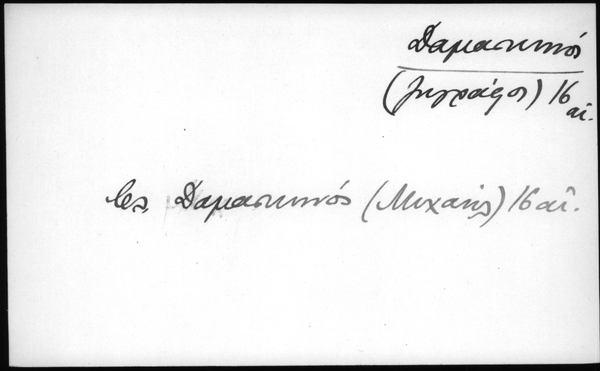 Δαμασκηνός
(ζωγράφος) 16 αἰ.
βλ. Δαμασκηνός (Μιχαήλ) 16 αἰ.